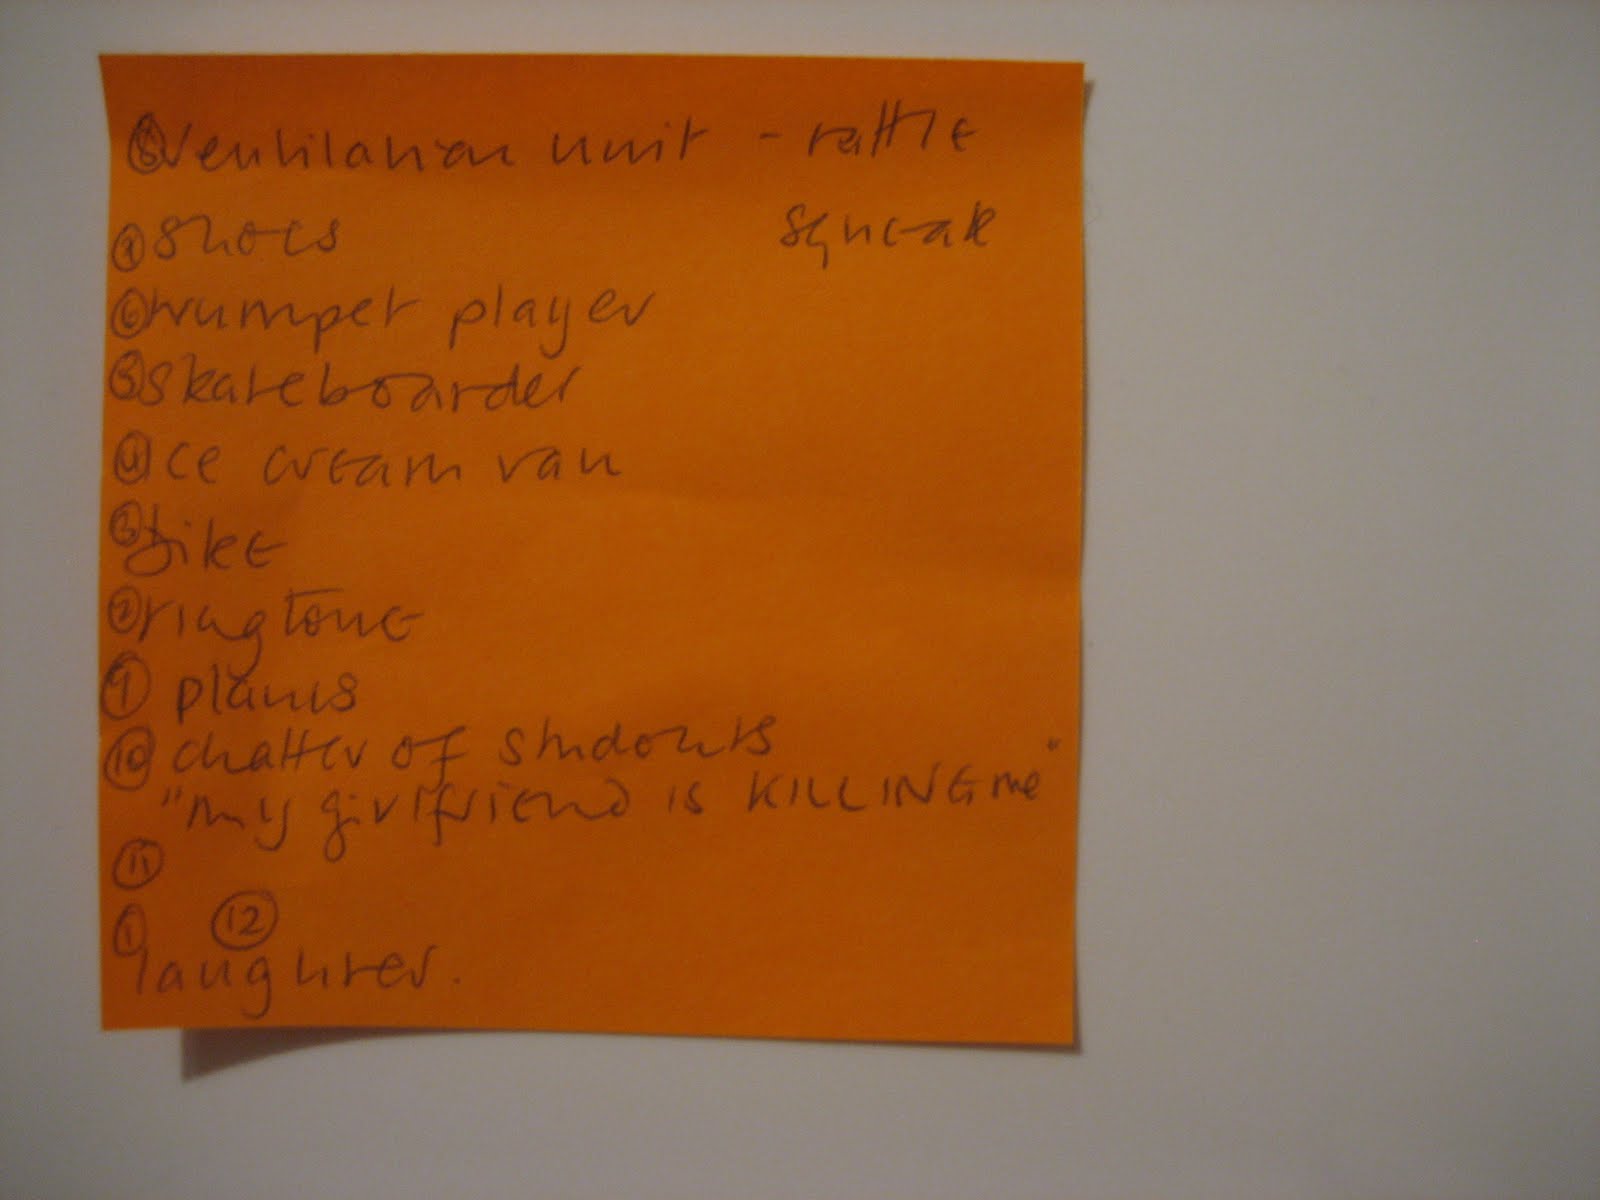 ⑧ ventilation unit - rattle
squeak
shoes
⑥ trumpet player
⑤ skateboarder
④ ice cream van
③ bike
② ringtone
⑨ planes
⑩ chatter of students
"my girlfriend is KILLING me"
⑪
① ⑫
laughter.